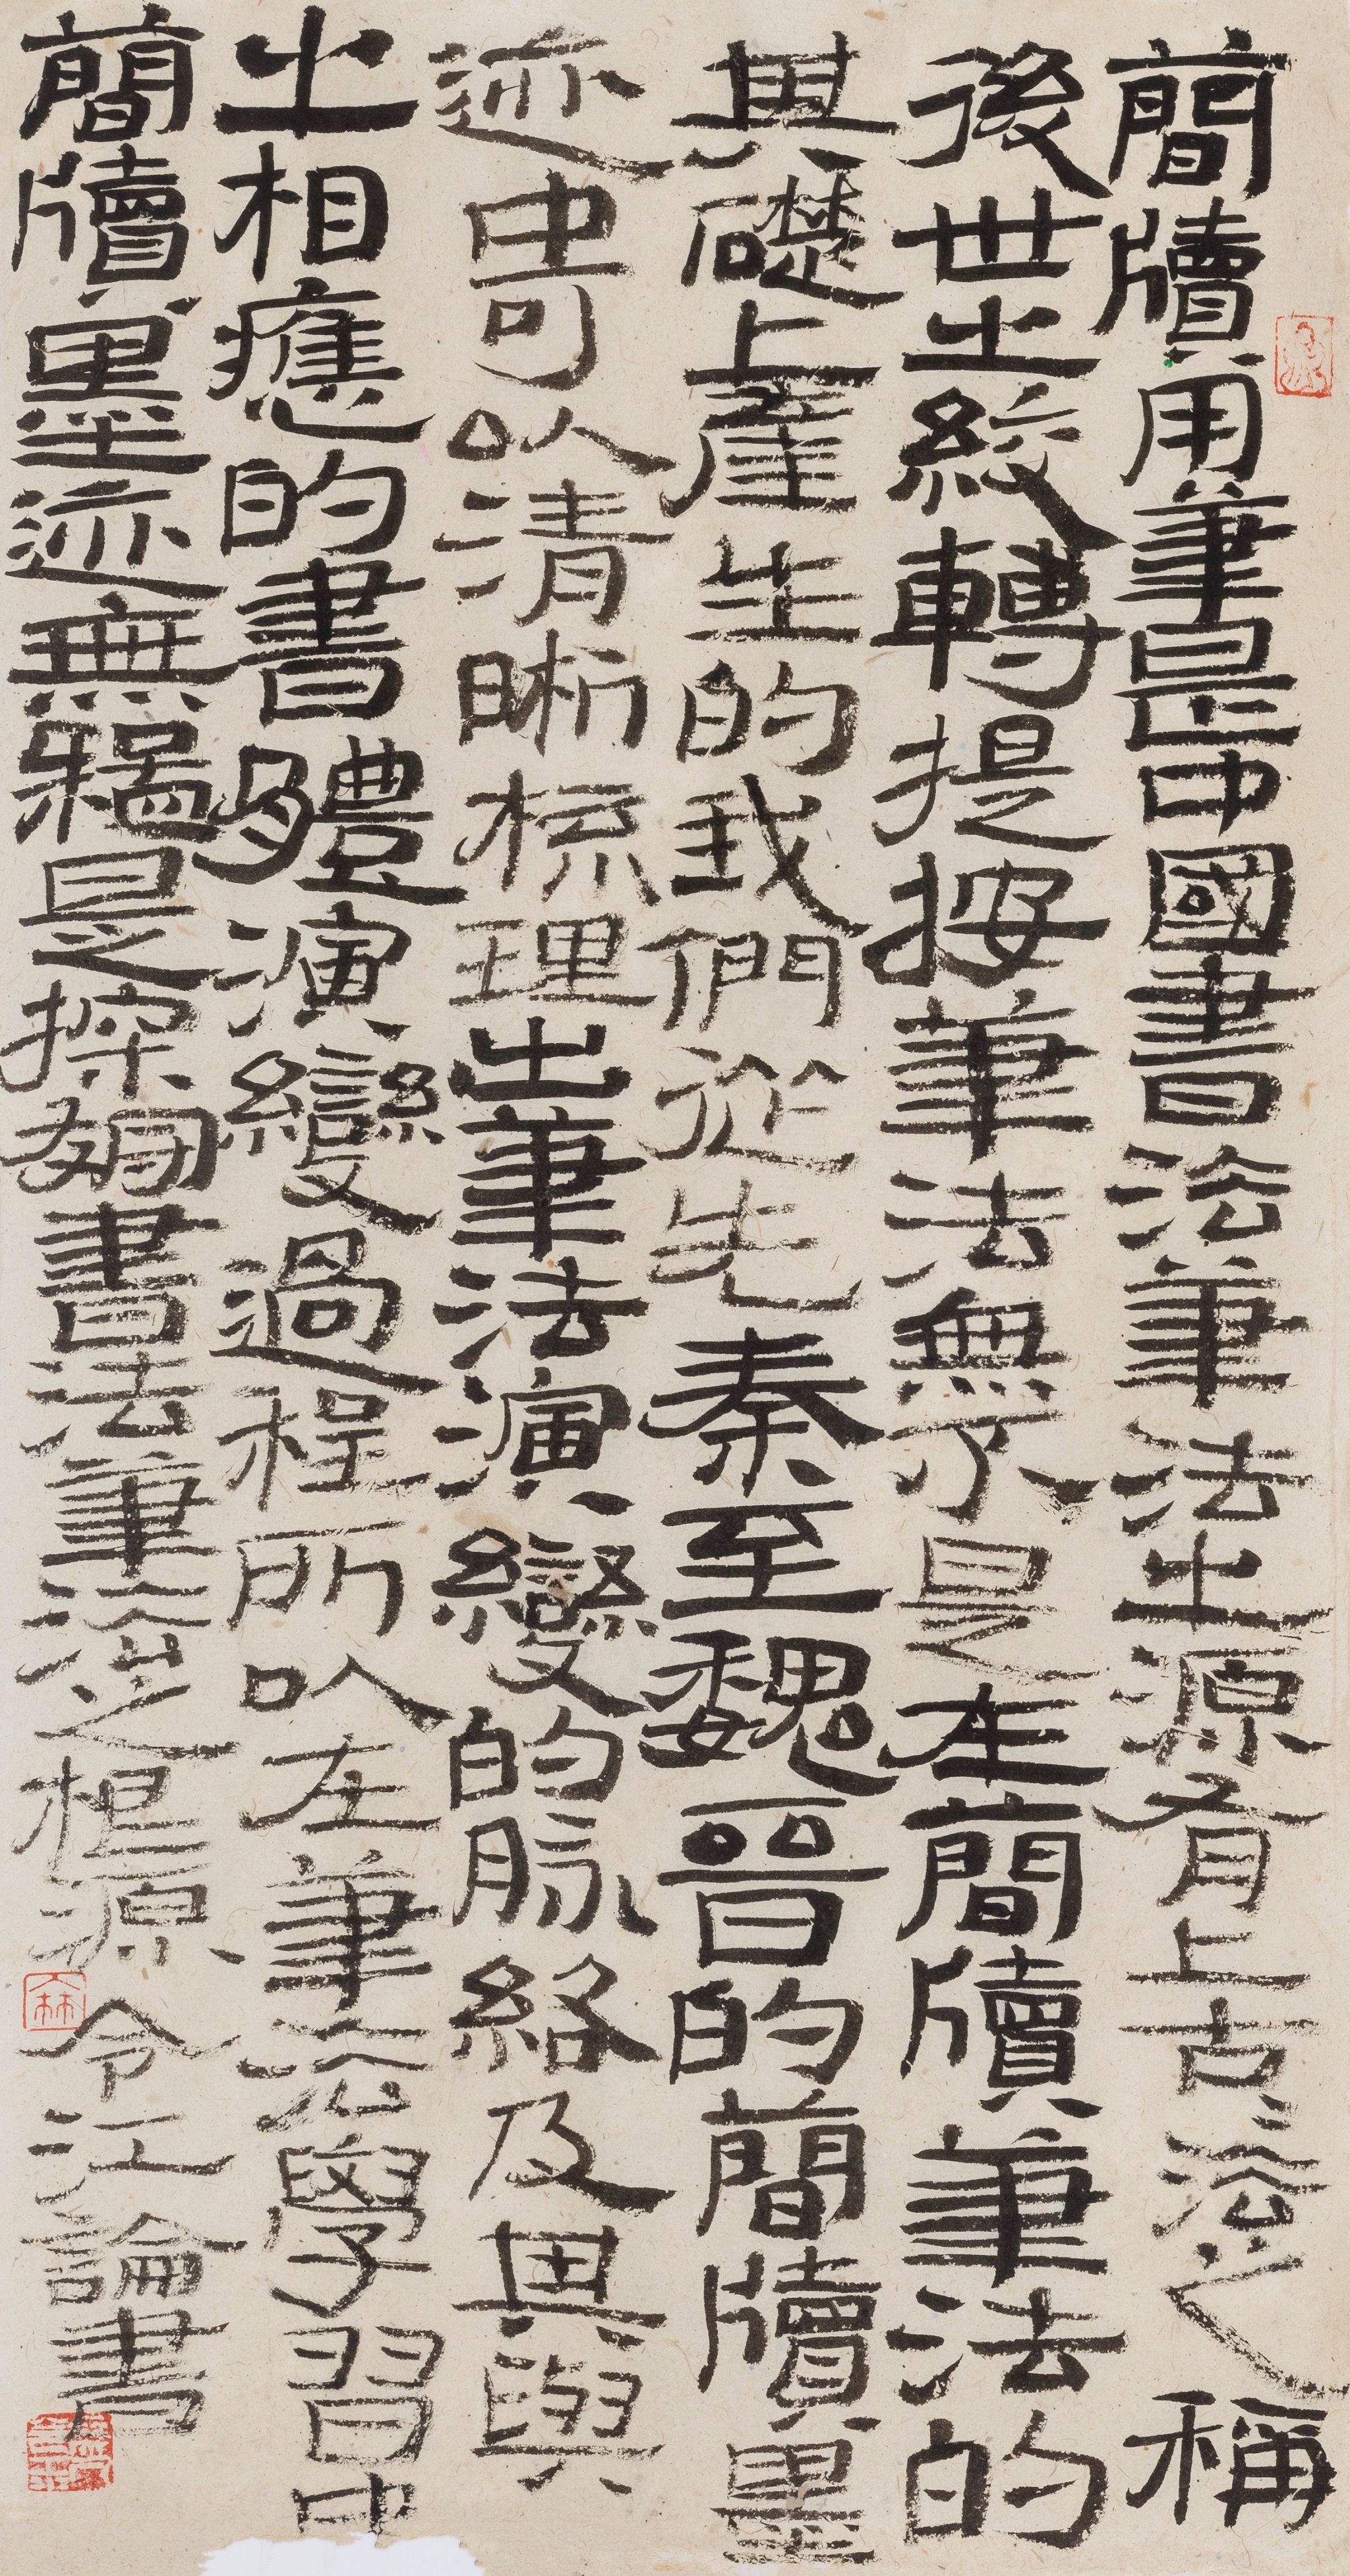 簡牘用筆是中國書法筆法之源有上古法之稱
後世之絞轉提按筆法無不是在簡牘筆法的
其礎上產生的我們從先秦至魏晉的簡牘墨
迹中可以清晰梳理出筆法演變的脈絡及其與
之相應的書體演變過程所以在筆法學習中
簡牘墨迹無是探書法筆法之根源 令江論書